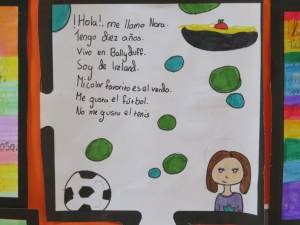 ¡Hola!, me llamo Nora.
Tengo diez años.
Vivo en Ballyduff.
Soy de Ireland.
Mi color favorito es el verde.
Me gusta el fútbol.
No me gusta el tenis